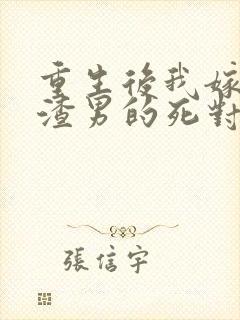 重生後我嫁
渣男的死對
張信宇